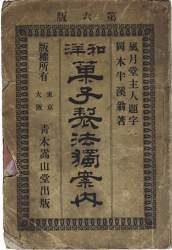 第六版
風月堂主人題字
岡本半溪翁著
和洋
菓子製法獨案内
版權所有
東京
大阪
青木嵩山堂出版